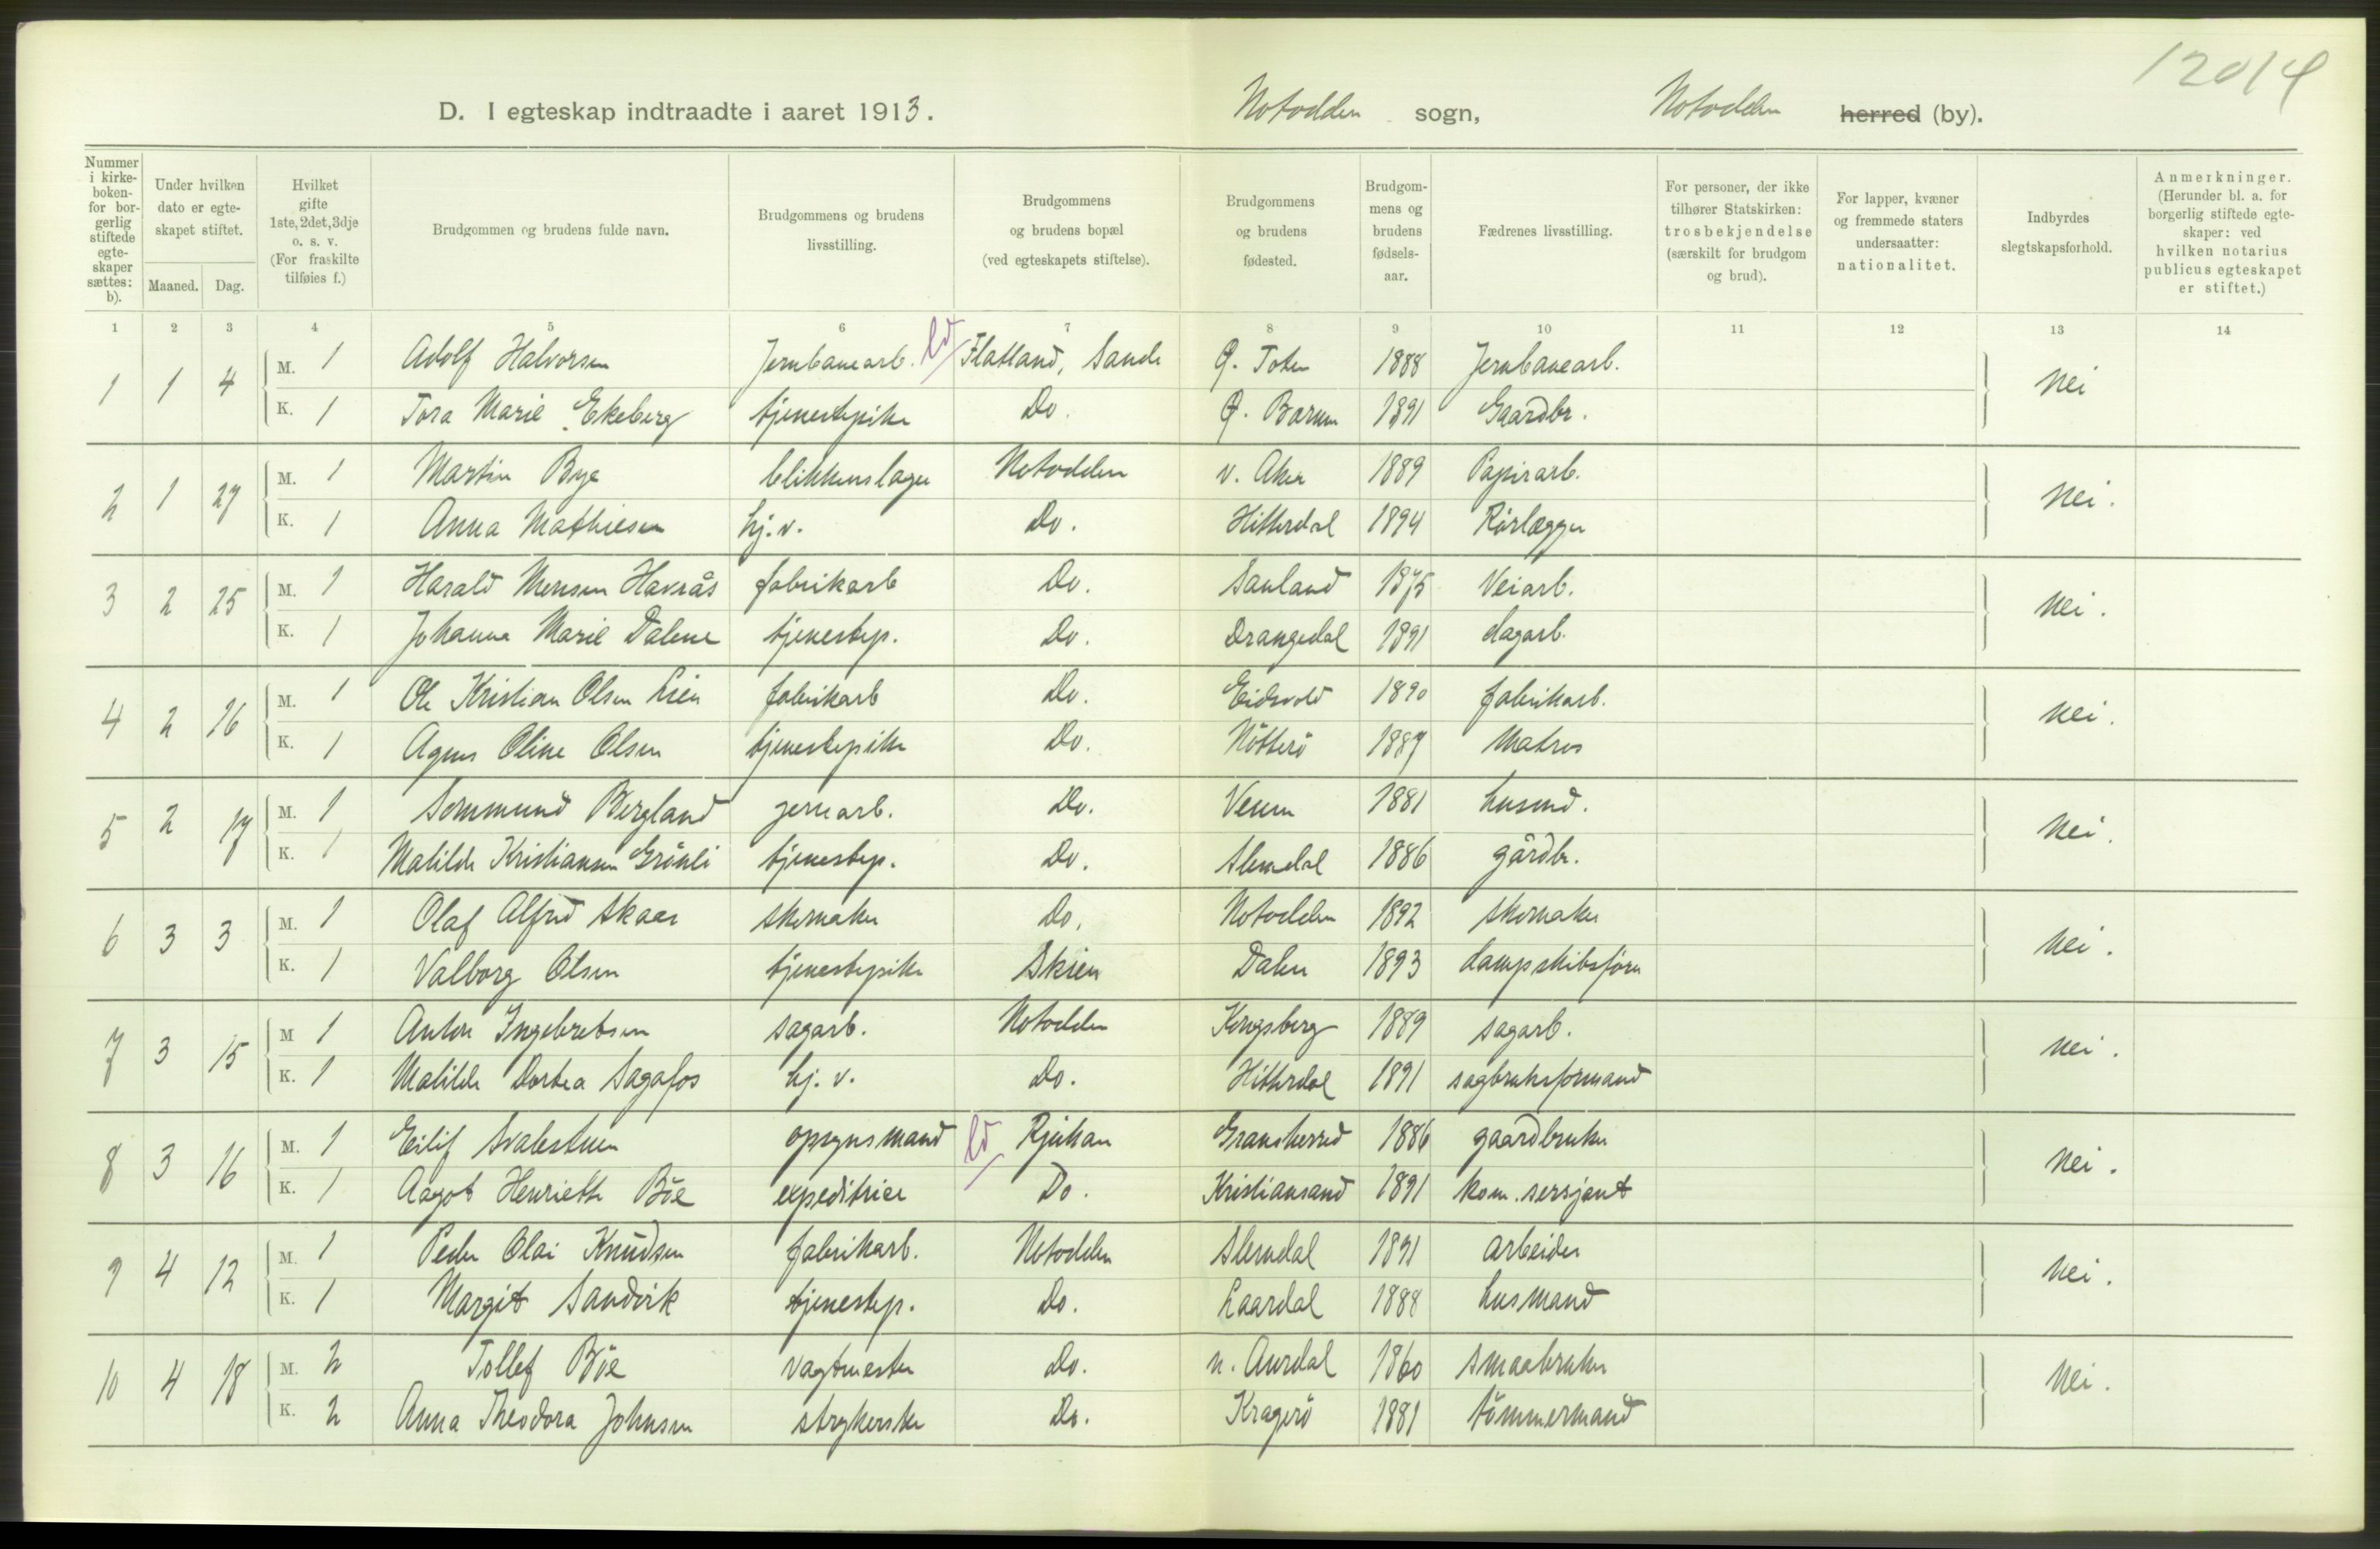 12014
D. I egteskap indtraadte i aaret 1913. Notodden sogn, Notodden herred (by).
Nummer i kirkeboken- for borgerlig stiftede egteskaper sættes: b).
Under hvilken dato er egteskapet stiftet. Maaned. Dag.
Hvilket gifte 1ste, 2det, 3dje o. s. v. (For fraskilte tilføies f.)
Brudgommen og brudens fulde navn.
Brudgommens og brudens livsstilling.
Brudgommens og brudens bopæl (ved egteskapets stiftelse).
Brudgommens og brudens fødested.
Brudgommens og brudens fødselsaar.
Fædrenes livsstilling.
For personer, der ikke tilhører Statskirken: trosbekjendelse (særskilt for brudgom og brud).
For lapper, kvæner og fremmede staters undersaatter: nationalitet.
Indbyrdes slegtskapsforhold.
Anmerkninger. (Herunder bl. a. for borgerlig stiftede egteskaper: ved hvilken notarius publicus egteskapet er stiftet.)
1 2 3 4 5 6 7 8 9 10 11 12 13 14
1 1 4 M. 1 Adolf Halvorsen Jernbanearb. Flatland, Sande Ø. Toten 1888 Jernbanearb. Nei
K. 1 Tora Marie Ekeberg tjenestepike Do. Ø. Bærum 1891 Gaardbr.
2 1 27 M. 1 Martin Bye blikkenslager Notodden v. Aker 1889 Papirarb. Nei.
K. 1 Anna Mathiesen hj. v. Do. Hitterdal 1894 Rørlægger
3 2 25 M. 1 Harald Monsen Havrås fabrikarb Do. Sauland 1875 Veiarb. Nei.
K. 1 Johanna Marie Dalene tjenestep. Do. Drangedal 1891 dagarb.
4 2 16 M. 1 Ole Kristian Olsen Lien fabrikarb Do. Eidsvold 1890 fabrikarb. Nei.
K. 1 Agnes Oline Olsen tjenestepike Do. Nötterö 1887 Matros
5 2 17 M. 1 Sommund Bergland jernarb. Do. Veum 1881 husmd. Nei.
K. 1 Matilde Kristiansen Grönli tjenestep. Do. Slemdal 1886 gårdbr.
6 3 3 M. 1 Olaf Alfred Skaar skomaker Do. Notodden 1892 skomaker Nei.
K. 1 Valborg Olsen tjenestepike Skien Dalen 1893 dampskibsfører
7 3 15 M 1 Anton Ingebretsen sagarb. Notodden Kongsberg 1889 sagarb. Nei.
K. 1 Matilde Dortea Sagafos hj. v. Do. Hitterdal 1891 sagbruksformand
8 3 16 M. 1 Eilif Svalestuen opsynsmand Rjukan Gransherred 1886 gaardbruker Nei.
K. 1 Aagot Henriette Böe expeditrice Do. Kristiansand 1891 kom. sersjant
9 4 12 M. 1 Peder Olai Knudsen fabrikarb. Notodden Slemdal 1891 arbeider Nei.
K. 1 Margit Sandvik tjenestep. Do. Laardal 1888 husmand
10 4 18 M. 2 Tollef Böe vagtmester Do. n. Aurdal 1860 smaabruker Nei.
K. 2 Anna Theodora Johnsen strykerske Do. Kragerö 1881 tömmermand